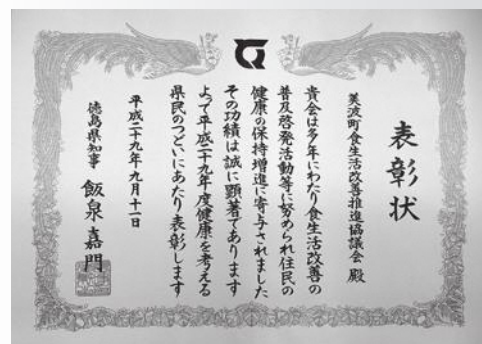 表彰状
美波町食生活改善推進協議会 殿
貴会は多年にわたり食生活改善の
普及啓発活動等に努められ住民の
健康の保持増進に寄与されました
その功績は誠に顕著であります
よって平成二十九年度健康を考える
県民のつどいにあたり表彰します
平成二十九年九月十一日
徳島県知事 飯泉嘉門